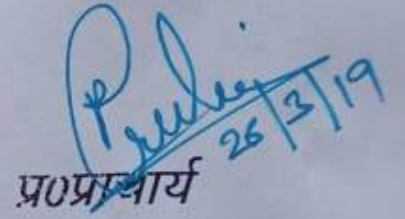 26/3/19
प्र०प्राचार्य